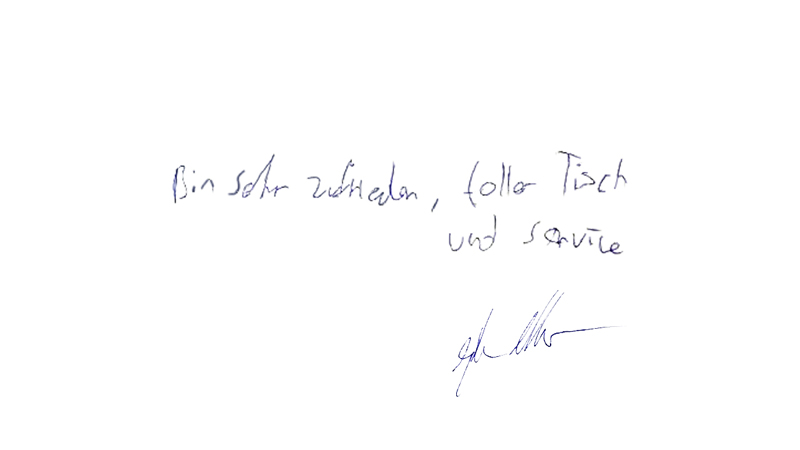 Bin sehr zufrieden, toller Tisch
und service